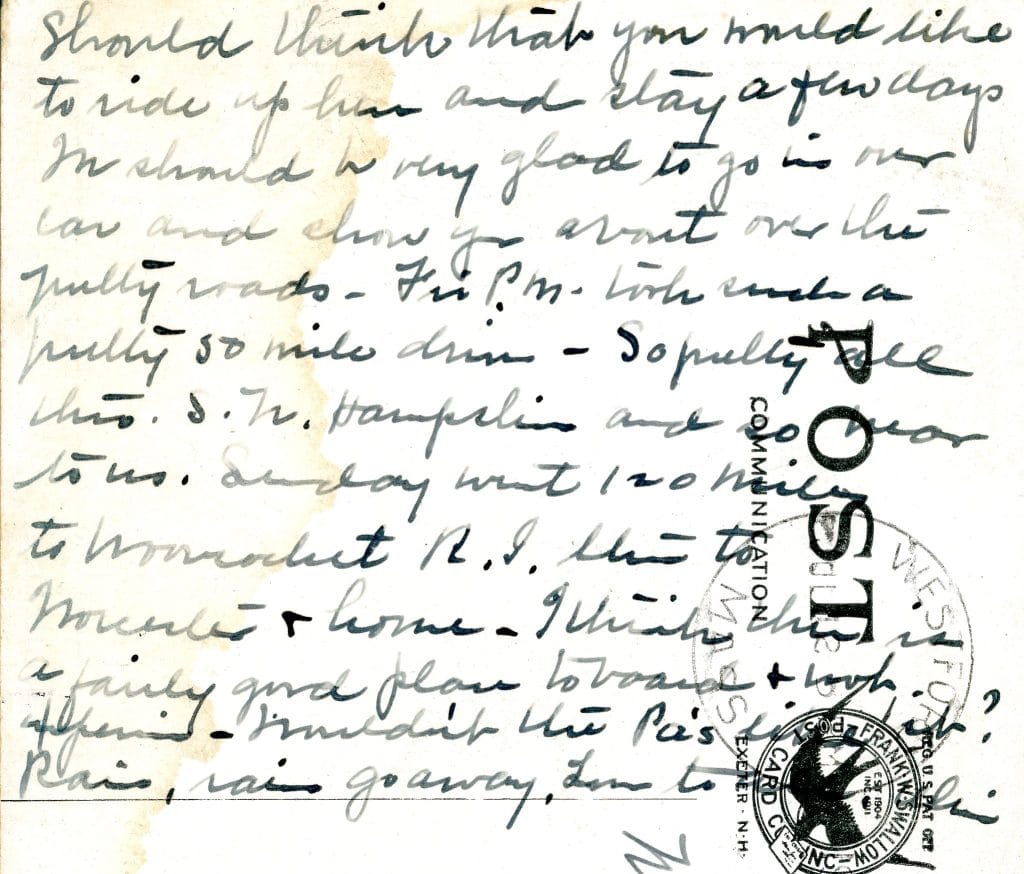 Should think that you would like
to ride up here and stay a few days
We should be very glad to go in our
car and show you about over the
pretty roads - Fri P.M. took such a
pretty 50 mile drive - So pretty all
thro. S. N. Hampshire and so near
to us. Sunday went 120 miles
to Woonsocket R.I. then to
Worcester & home - I think there is
a fairly good place to board & not
expensive - Wouldn't the Pa's like it?
Rain, rain go away. Love to
POST
COMMUNICATION
WESTFORD
MASS
FRANK W. SWALLOW
POST CARD CO. INC.
EST 1904
INC 1911
REG. U.S. PAT OFF
EXETER - N.H.